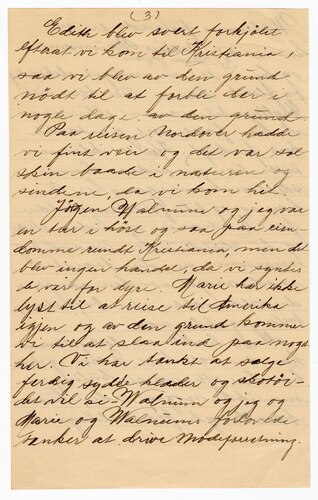 (3)
Edith blev svert forkjølet
efterat vi kom til Kristiania,
saa vi blev av den grund
nödt til at forble her i
nogle dage av den grund.
Paa reisen Nordover hadde
vi fint veir og det var sol
skin baade i naturen og
sindene, da vi kom hit.
Jörgen Walnum og jeg var
en tur i höst og saa paa eien-
domme rundt Kristiania, men det
blev ingen handel, da vi syntes
de var for dyre. Marie har ikke
lyst til at reise til Amerika
igjen og av den grund kommer
vi til at slaa ind paa nogt
her. Vi har tænkt at sælge
ferdig sydde klæder og skotöi-
det vil si - Walnum og jeg og
Marie og Walnums forlovede
tænker at drive Modeforretning.